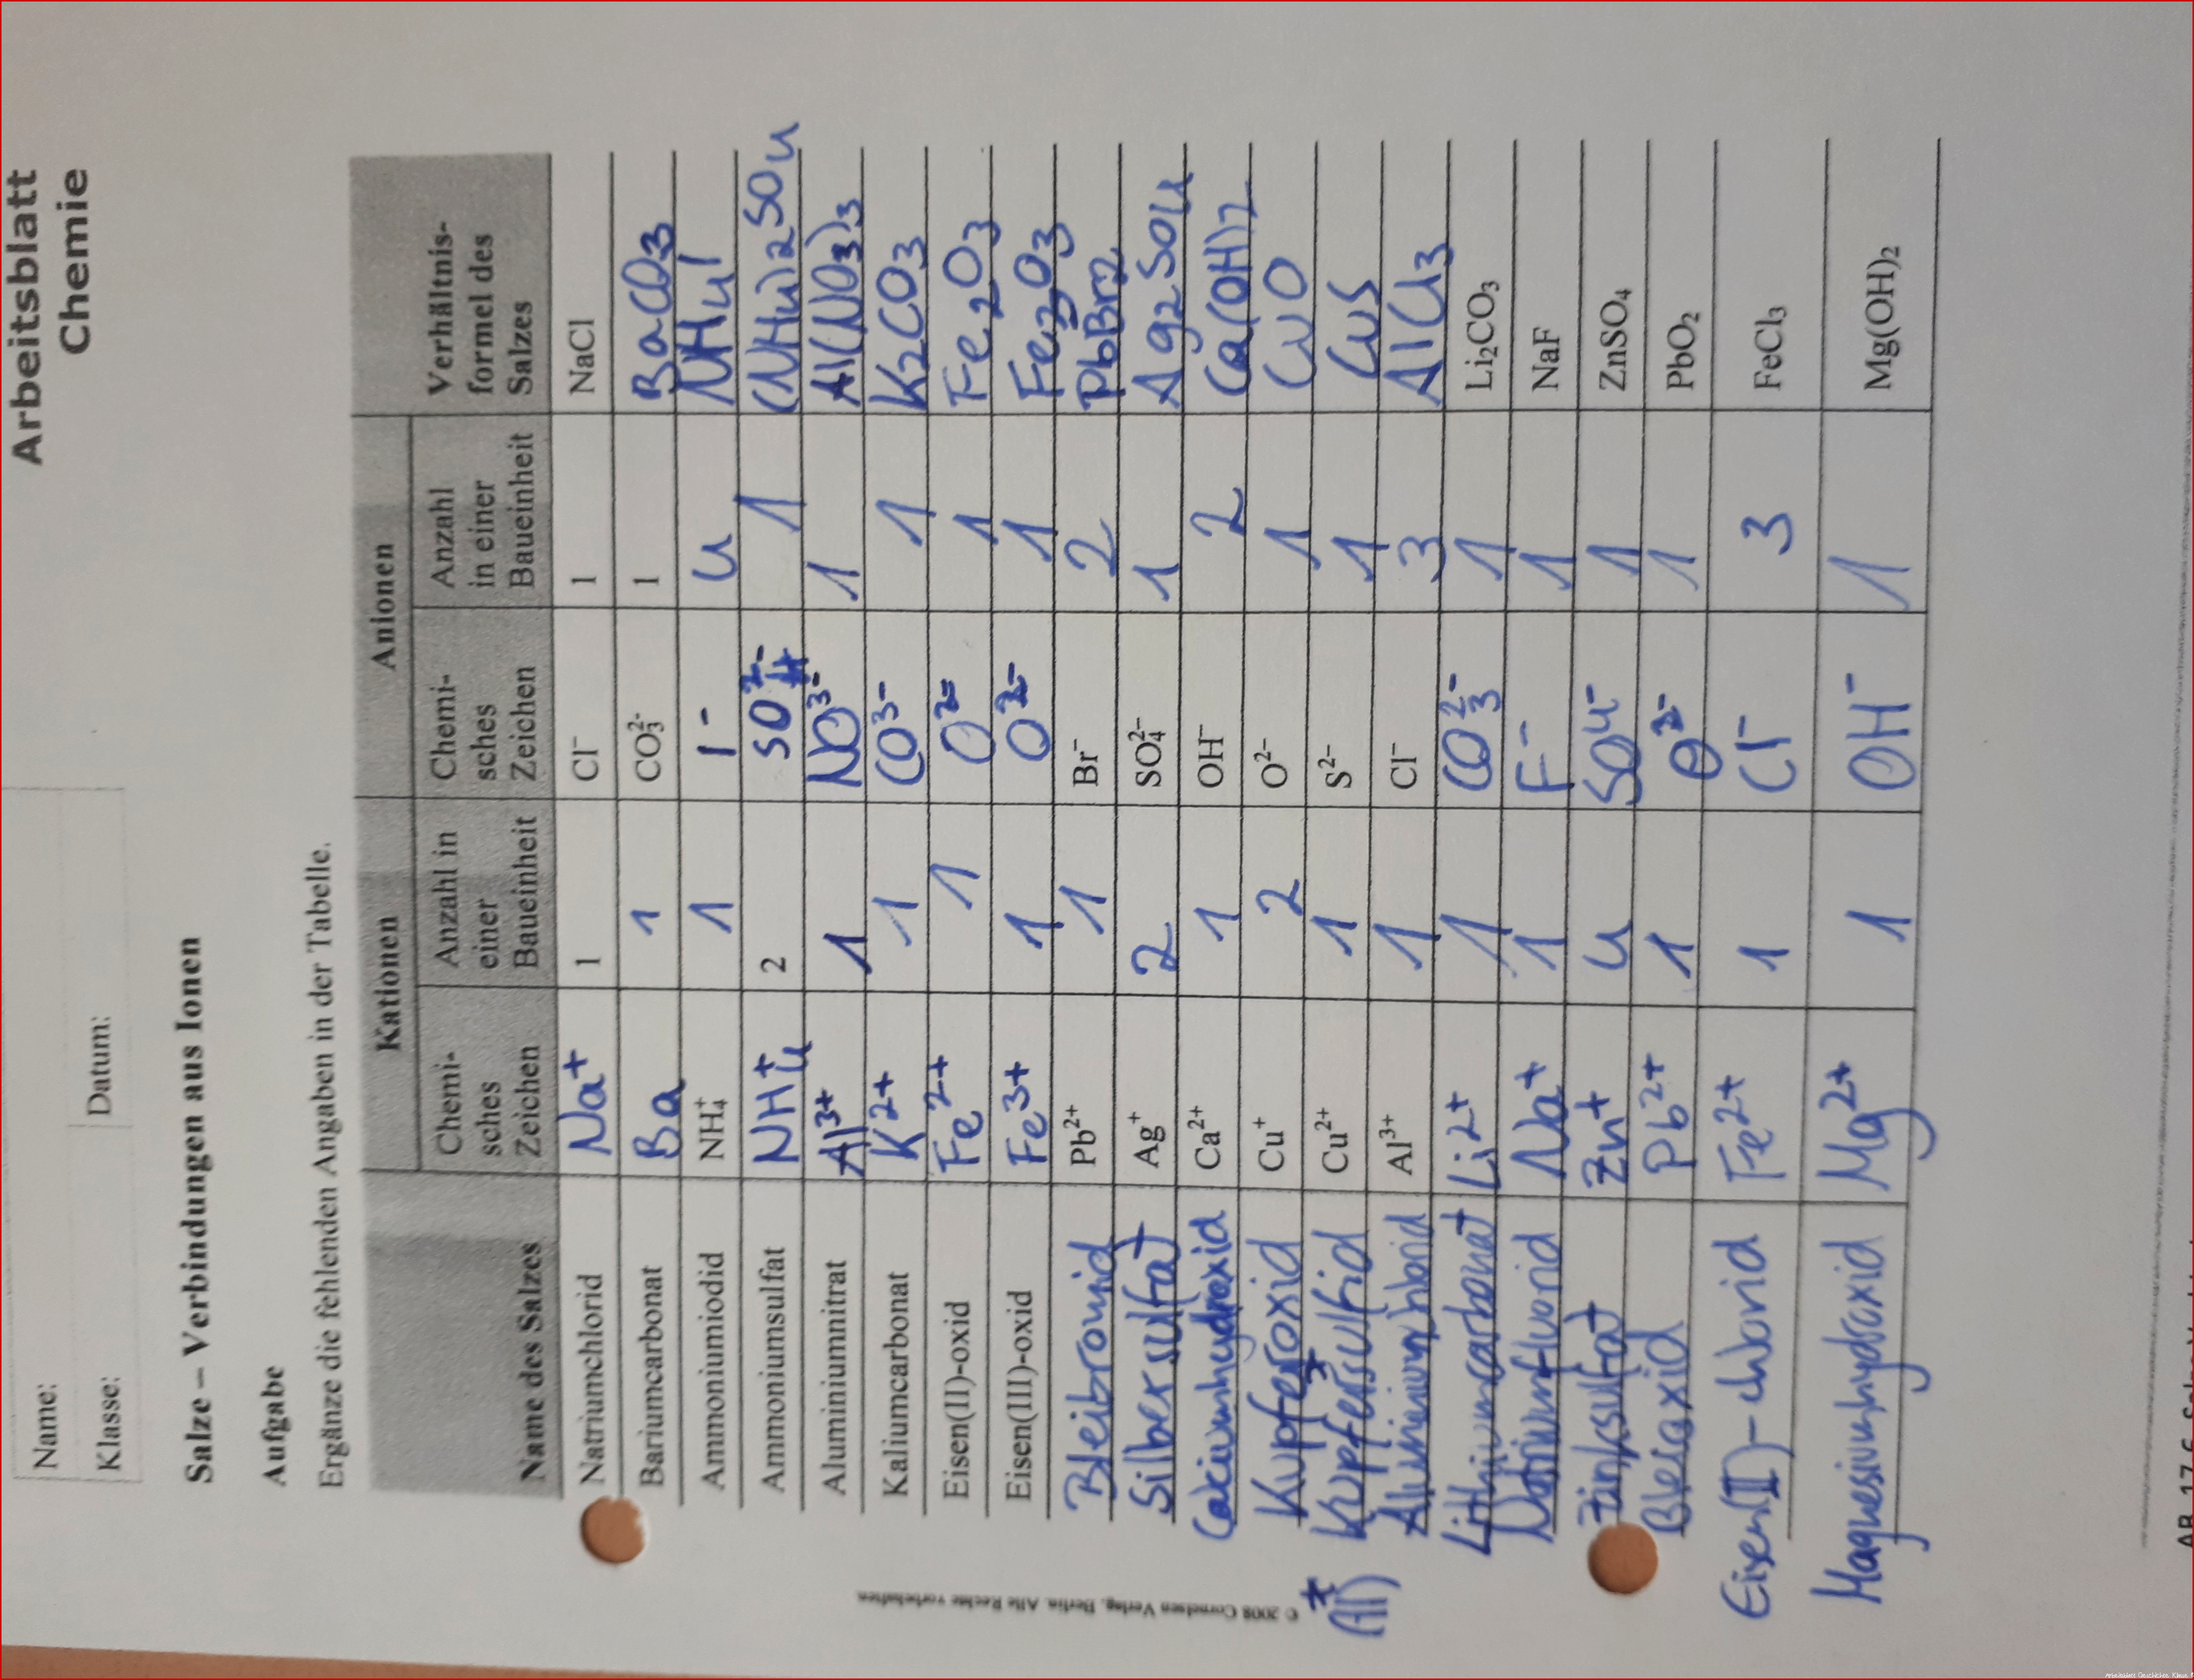 Arbeitsblatt
Chemie
Name:
Klasse: Datum:
Salze – Verbindungen aus Ionen
Aufgabe
Ergänze die fehlenden Angaben in der Tabelle.
Kationen Anionen
Name des Salzes Chemi-sches Zeichen Anzahl in einer Baueinheit Chemi-sches Zeichen Anzahl in einer Baueinheit Verhältnis-formel des Salzes
Natriumchlorid Na⁺ 1 Cl⁻ 1 NaCl
Bariumcarbonat Ba 1 CO₃²⁻ 1 BaCO₃
Ammoniumiodid NH₄⁺ 1 I⁻ 4 NH4I
Ammoniumsulfat NH₄⁺ 2 SO₄²⁻ 1 (NH4)2SO4
Aluminiumnitrat Al³⁺ 1 NO³⁻ 1 Al(NO3)3
Kaliumcarbonat K²⁺ 1 CO³⁻ 1 K2CO3
Eisen(II)-oxid Fe²⁺ 1 O²⁻ 1 Fe₂O3
Eisen(III)-oxid Fe³⁺ 1 O²⁻ 1 Fe2O3
Bleibromid Pb²⁺ 1 Br⁻ 2 PbBr2
Silbersulfat Ag⁺ 2 SO₄²⁻ 1 Ag2SO4
Calciumhydroxid Ca²⁺ 1 OH⁻ 2 Ca(OH)2
Kupferoxid Cu⁺ 2 O²⁻ 1 CuO
Kupfersulfid Cu²⁺ 1 S²⁻ 1 CuS
Aluminiumchlorid Al³⁺ 1 Cl⁻ 3 AlCl3
Lithiumcarbonat Li²⁺ 1 CO₃²⁻ 1 Li₂CO₃
Natriumfluorid Na⁺ 1 F⁻ 1 NaF
Zinksulfat Zn⁺ 4 SO4⁻ 1 ZnSO₄
Bleioxid Pb²⁺ 1 O²⁻ 1 PbO₂
Eisen(II)-chlorid Fe²⁺ 1 Cl⁻ 3 FeCl₃
Magnesiumhydroxid Mg²⁺ 1 OH⁻ 1 Mg(OH)₂
© 2008 Cornelsen Verlag, Berlin. Alle Rechte vorbehalten.